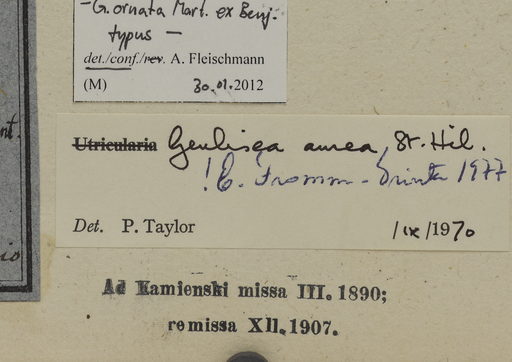 -G. ornata Mart. ex Benj.
typus -
det./conf./rev. A. Fleischmann
(M) 30.01.2012
nt.
Utricularia Genlisea aurea, St. Hil.
! E. Fromm-Trinta 1977
Det. P. Taylor /IX/1970
io
Ad Kamienski missa III. 1890;
remissa XII. 1907.